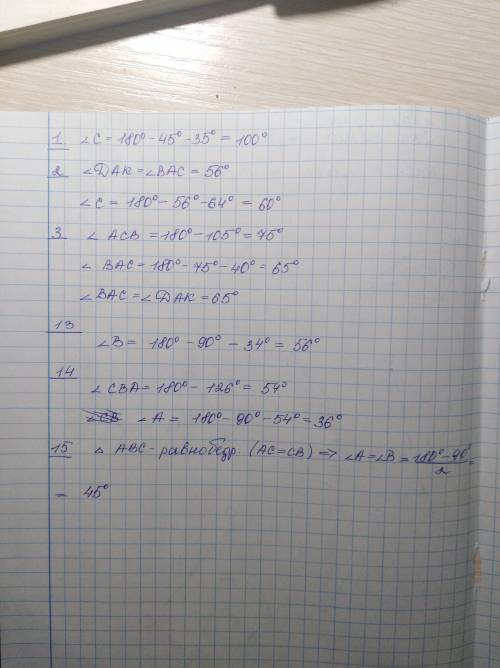 1 ∠C = 180° - 45° - 35° = 100°
2 ∠DAK = ∠BAC = 56°
∠C = 180° - 56° - 64° = 60°
3 ∠ACB = 180° - 105° = 75°
∠BAC = 180° - 75° - 40° = 65°
∠BAC = ∠DAK = 65°
13
∠B = 180° - 90° - 34° = 56°
14
∠CBA = 180° - 126° = 54°
∠A = 180° - 90° - 54° = 36°
15 △ ABC - равнобедр. (AC = CB) => ∠A = ∠B = (180° - 90°)/2 =
= 45°